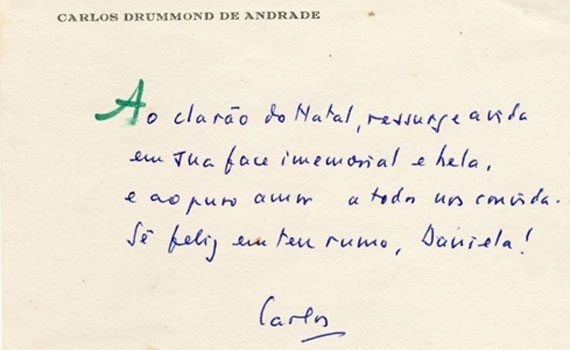 CARLOS DRUMMOND DE ANDRADE
Ao clarão do Natal, ressurge a vida
em sua face imemorial e bela,
e ao puro amor a todos nos convida.
Sê feliz em teu rumo, Daniela!
Carlos